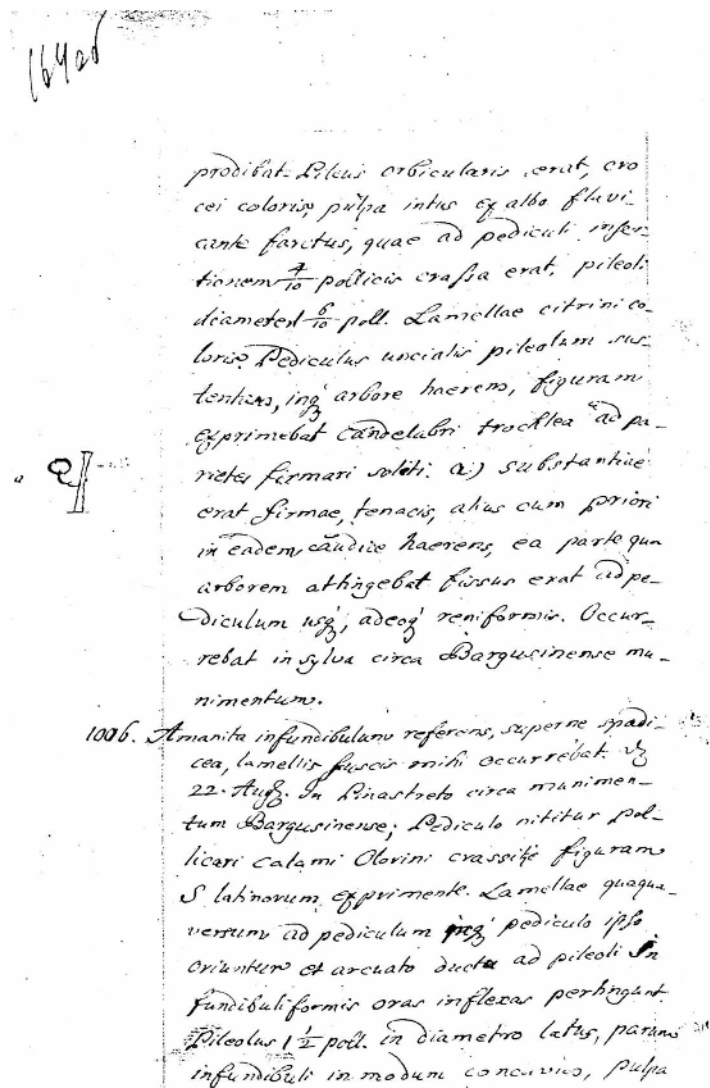 164 об
prodibat. Pileus orbicularis erat, cro
cei coloris, pulpa intus ex albo flavi-
cante farctus, quae ad pediculi inser-
tionem 4/10 pollicis crassa erat, pileoli
diameter 6/10 poll. Lamellae citrini co-
loris. Pediculus uncialis pileolum sus-
tentans, inq arbore haerens, figuram
exprimebat candelabri trochlea ad pa-
rietes firmari soliti. a.) substantiae
a
erat firmae, tenacis, alius cum priori
in eadem caudice haerens, ea parte qua
arborem attingebat fissus erat ad pe-
diculum usq, adeoq reniformis. Occur-
rebat in sylva circa Bargusinense mu-
nimentum.
1006. Amanita infundibulum referens, superne spadi-
cea, lamellis fuscis mihi occurrebat. d
22. Aug. In Pinastreto circa munimen-
tum Bargusinense; Pediculo nititur pol-
licari calami Olorini crassitie figuram
S latinorum exprimente. Lamellae quaqua-
versum ad pediculum inq pediculo ipso
oriuntur et arcuato ductu ad pileoli In
fundibuliformis oras inflexas pertingunt.
Pileolus 1 1/2 poll. in diametro latus, parum
infundibuli in modum concavus, pulpa